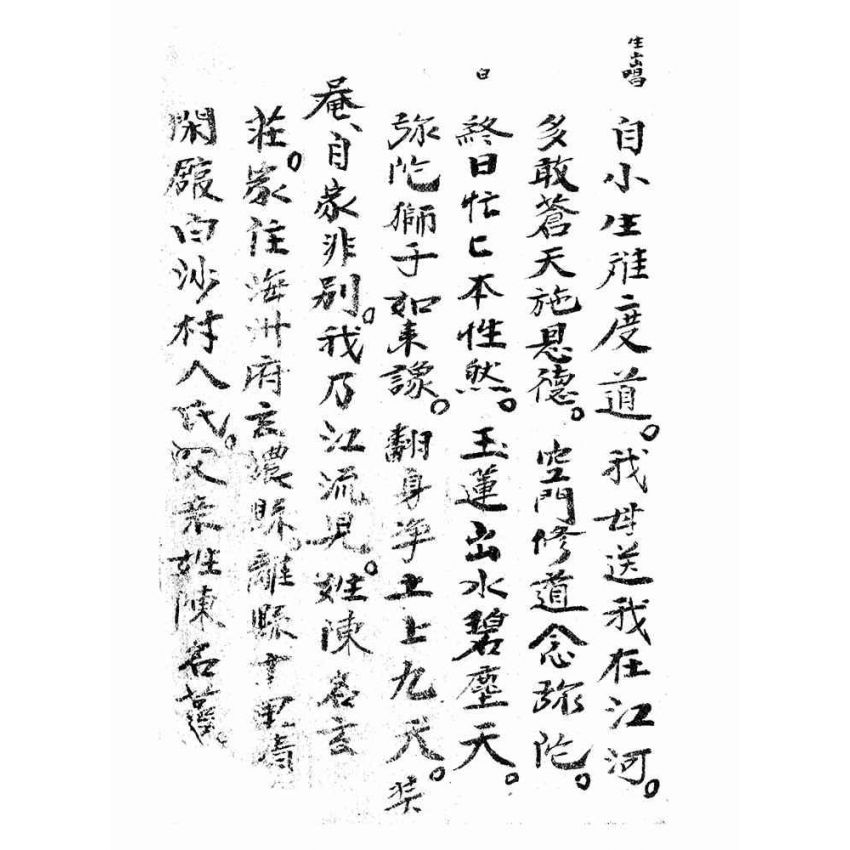 生出唱
自小生難度道。我母送我在江河。
多敢蒼天施恩德。空門修道念弥陀。
白
終日忙匕本性然。玉蓮出水碧塵天。
弥陀獅子如來謗。翻身净土上九天。奘
庵、自家非別。我乃江流児。姓陳名玄
莊。家住海州府玄濃縣。離縣十里有
閑殿白沙村人氏。父亲姓陳名蕚